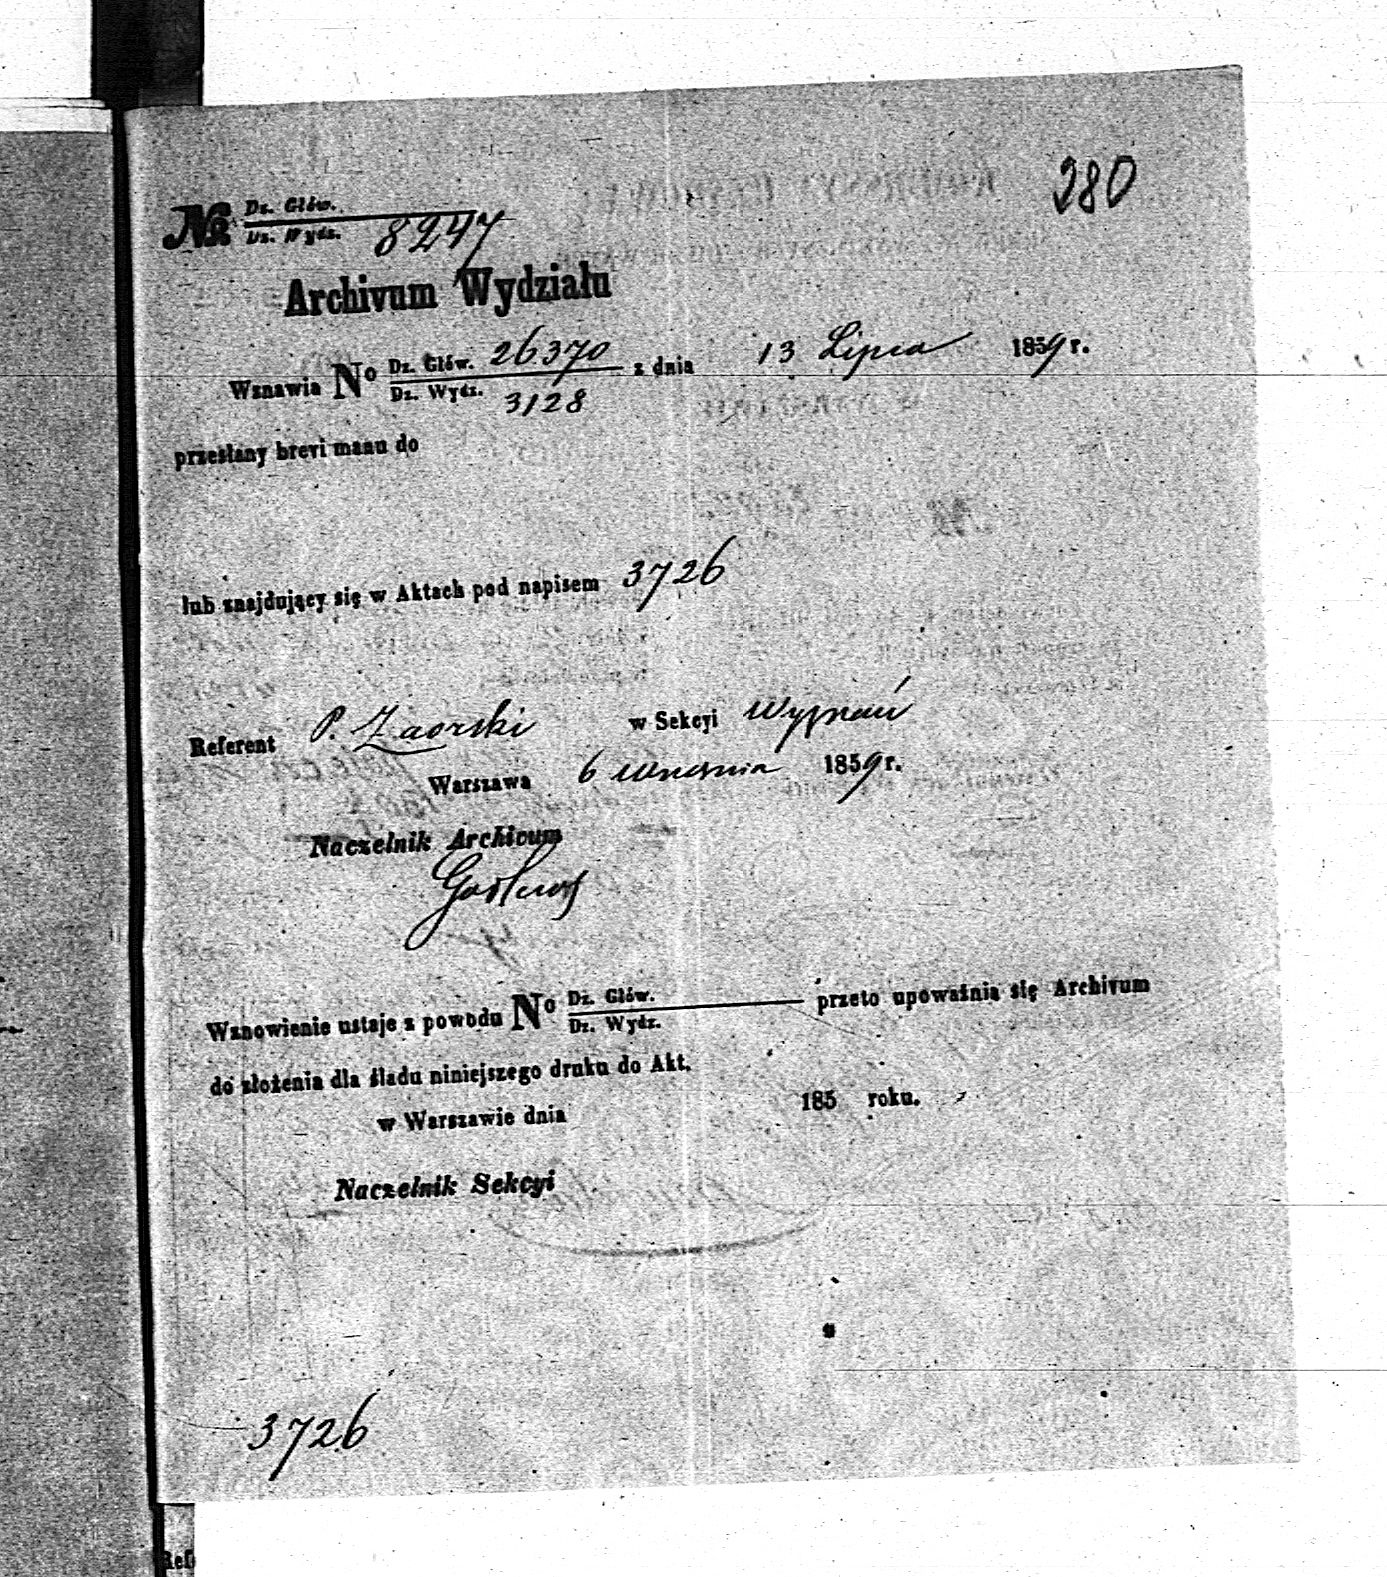 280
№ Dz. Głów.
Dz. Wydz. 8247
Archivum Wydziału
Wznawia No Dz. Głów. 26370 z dnia 13 Lipca 1859 r.
Dz. Wydz. 3128
przesłany brevi manu do
lub znajdujący się w Aktach pod napisem 3726
Referent P. Zaorski w Sekcyi
Warszawa 6 Września 1859 r.
Naczelnik Archivum
Wznowienie ustaje z powodu No Dz. Głów. przeto upoważnia się Archivum
Dz. Wydz.
do złożenia dla śladu niniejszego druku do Akt.
w Warszawie dnia 185 roku.
Naczelnik Sekcyi
3726
Ref